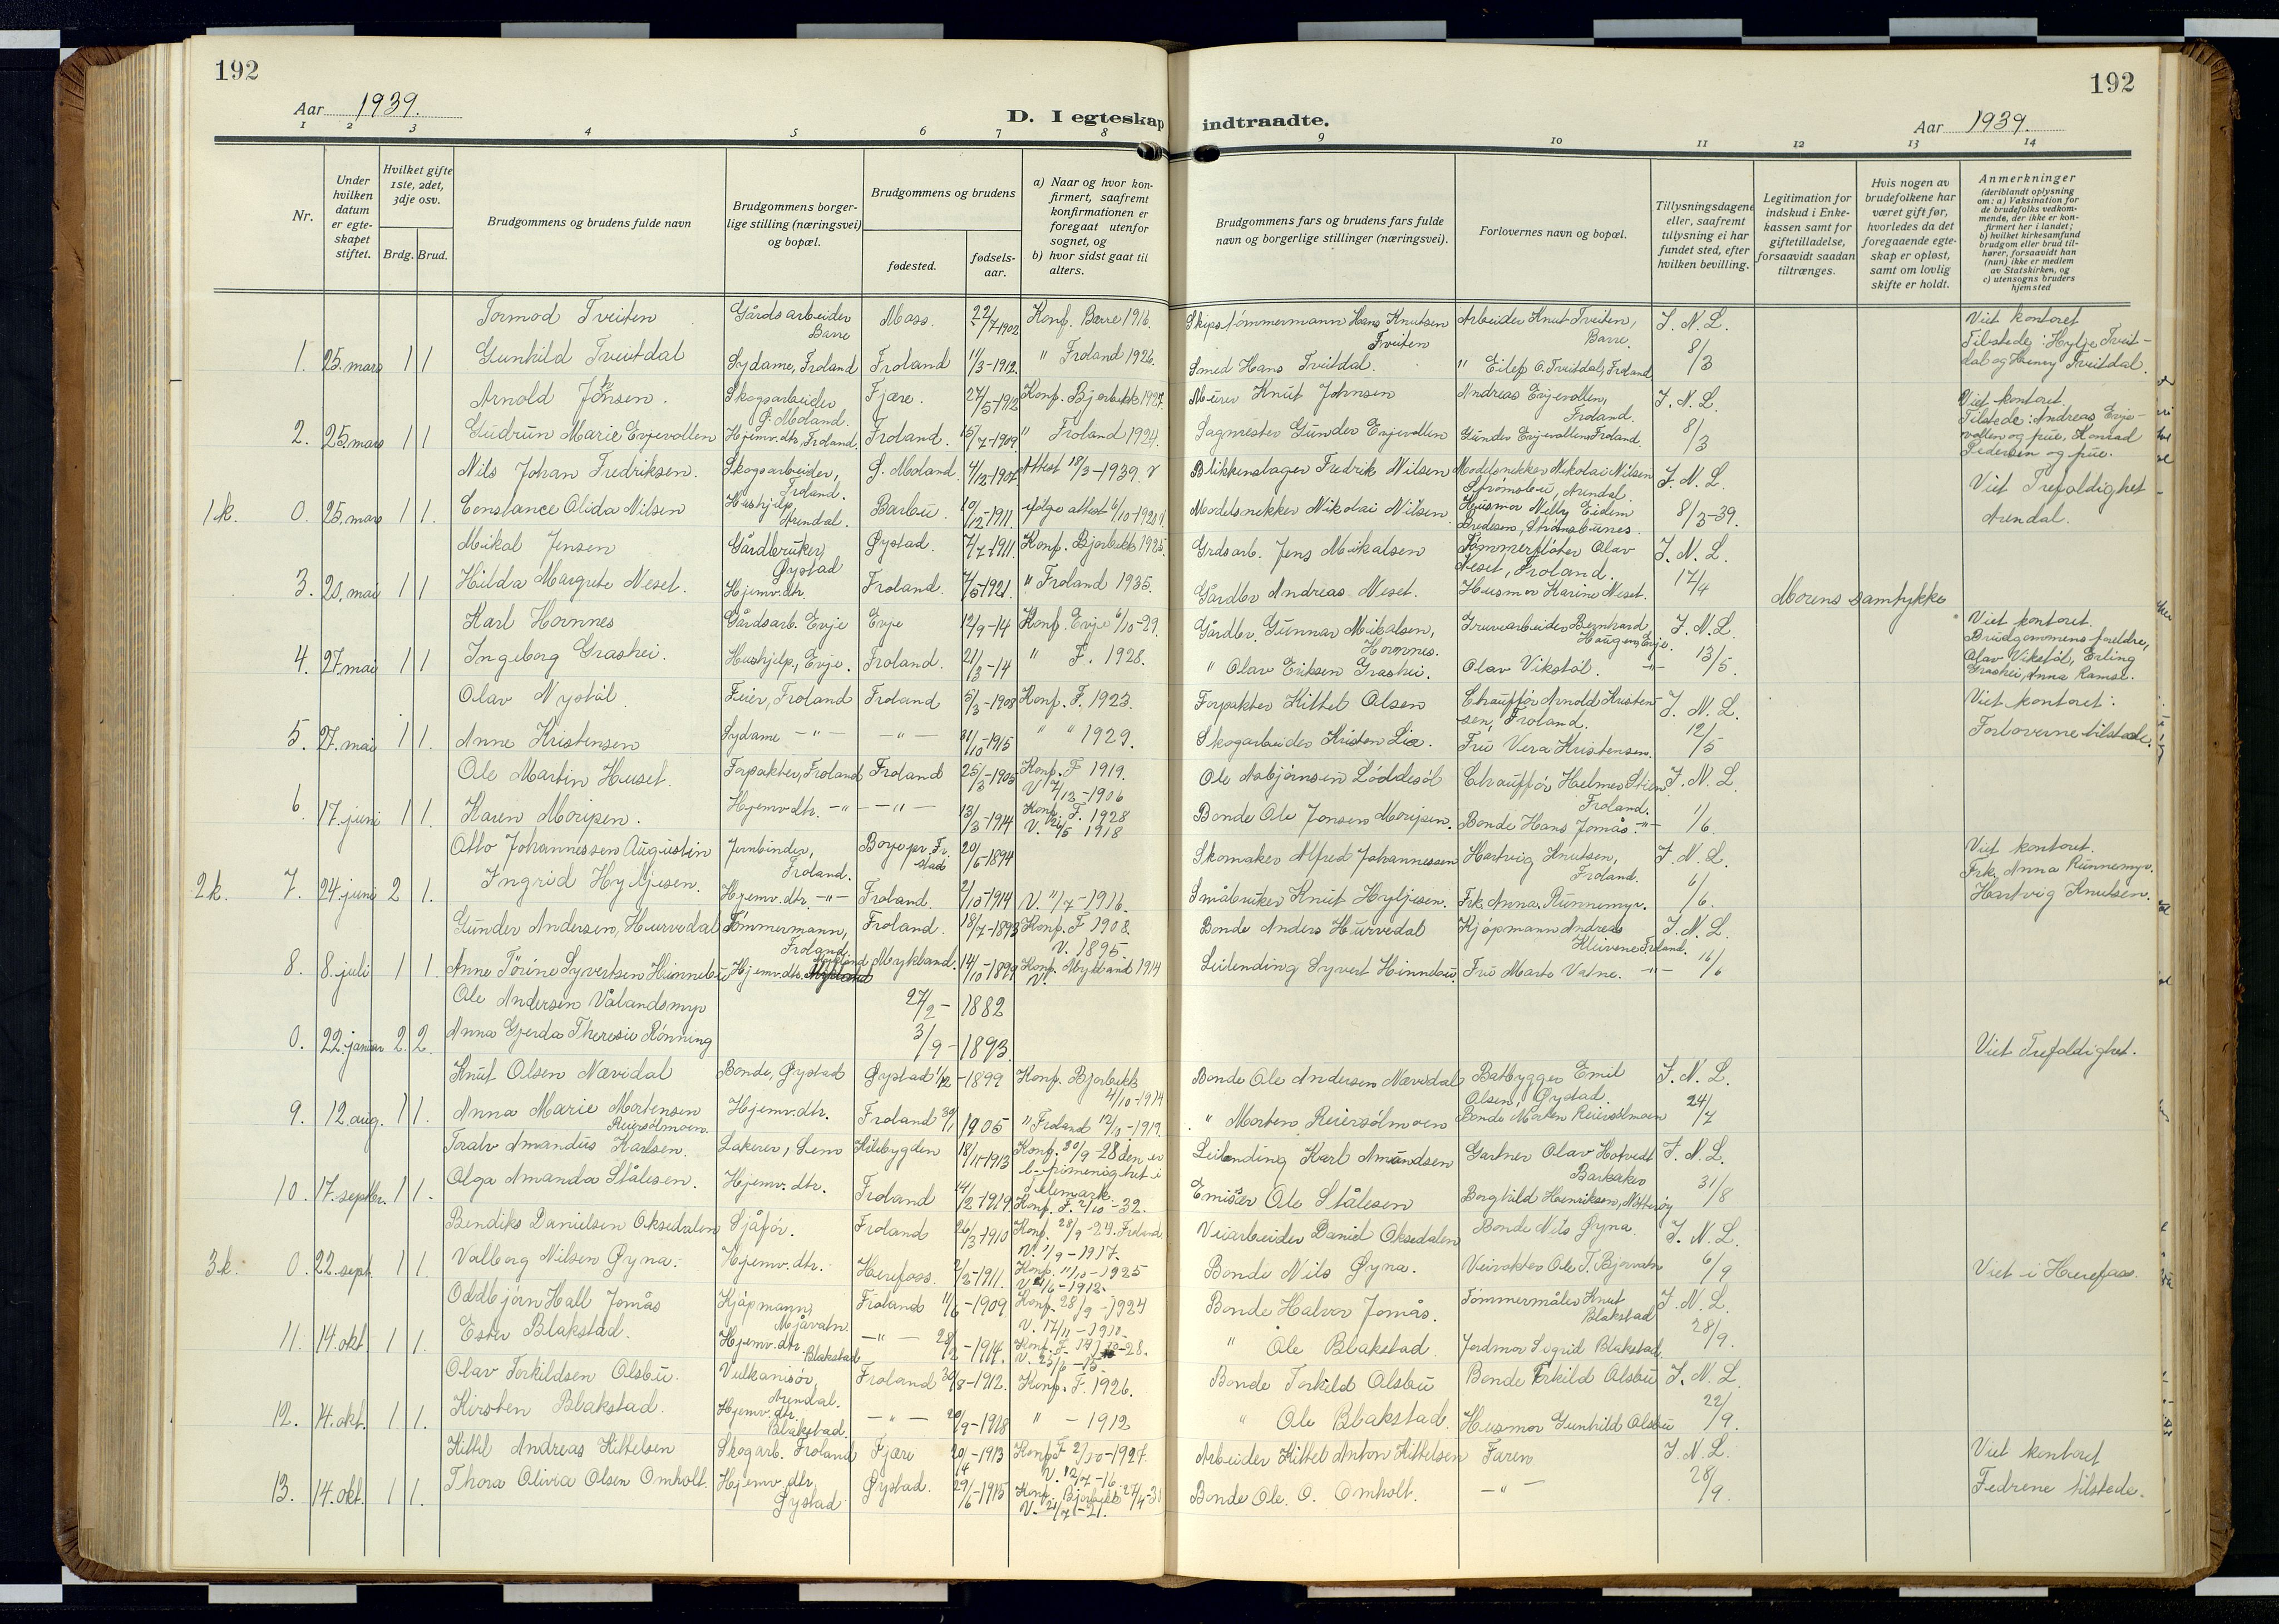 192
192
Aar 1939.
D. I egteskap indtraadte.
Aar 1939.
1 2 3 4 5 6 7 8 9 10 11 12 13 14
Nr.
Under hvilken datum er egteskapet stiftet.
Hvilket gifte 1ste, 2det, 3dje osv.
Brdg. Brud.
Brudgommens og brudens fulde navn
Brudgommens borgerlige stilling (næringsvei) og bopæl.
Brudgommens og brudens
fødested.
fødselsaar.
a) Naar og hvor konfirmert, saafremt konfirmationen er foregaat utenfor sognet, og
b) hvor sidst gaat til alters.
Brudgommens fars og brudens fars fulde navn og borgerlige stillinger (næringsvei).
Forlovernes navn og bopæl.
Tillysningsdagene eller, saafremt tillysning ei har fundet sted, efter hvilken bevilling.
Legitimation for indskud i Enkekassen samt for giftetilladelse, forsaavidt saadan tiltrænges.
Hvis nogen av brudefolkene har været gift før, hvorledes da det foregaaende egteskap er opløst, samt om lovlig skifte er holdt.
Anmerkninger
(deriblandt oplysning om: a) Vaksination for de brudefolks vedkommende, der ikke er konfirmert her i landet; b) hvilket kirkesamfund brudgom eller brud tilhører, forsaavidt han (hun) ikke er medlem av Statskirken, og c) utensogns bruders hjemsted
Tormod Tveiten Gårdsarbeider Barre Mass. 22/7-1902 Konf. Barre 1916. Skipstømmermann Hans Knutsen Tveiten Arbeider Knut Tveiten, Barre. J. N. L. Viet kontoret
1. 25. mars 1 1 Gunhild Tveitdal Sydame, Froland Froland 11/3-1912. " Froland 1926. Smed Hans Tveitdal. " Eilef O. Tveitdal, Froland 8/3 Tilstede: Hylje Tveitdal og Henry Tveitdal.
Arnold Jonsen. Skogsarbeider Ø. Moland. Fjære. 27/5-1912 Konf. Bjorbekk 1927. Murer Knut Johnsen Andreas Evjevollen, Froland. J. N. L. Viet kontoret.
2. 25. mars 1 1 Gudrun Marie Evjevollen Hjemv. dtr, Froland. Froland. 15/7-1909 " Froland 1924. Sagmester Gunder Evjevollen Gunder Evjevollen Froland. 8/3 Tilstede: Andreas Evjevollen og frue, Konrad Pedersen og frue.
Nils Johan Fredriksen. Skogsarbeider, Froland. Ø. Moland. 4/12-1901 Attest 18/3-1939. Blikkenslager Fredrik Nilsen Modelsnekker Nikolai Nilsen Strømsbu, Arendal. J. N. L. Viet Trefoldighet
1 k. 0. 25. mars 1 1. Constance Olida Nilsen Hushjelp, Arendal. Barbu. 10/12-1911. ifølge attest 6/10-1920 Modelsnekker Nikolai Nilsen Husmor Nelly Eidem Bredesen, Strømsbunes. 8/3-39. Arendal.
Mikal Jensen Gårdbruker, Øystad Øystad. 7/7-1911 Konf. Bjorbekk 1925. Grdsarb. Jens Mikalsen Tømmerfløter Olav Neset, Froland. J. N. L.
3. 20. mai 1 1 Hilda Margrete Neset. Hjemv. dtr. Froland. 7/5-1921. " Froland 1935. Gårdbr Andreas Neset. Husmor Karine Neset. 17/4 Morens samtykke
Karl Hornnes Gårdsarb. Evje Evje 12/9-14 Konf. Evje 6/10-29. Gårdbr. Gunnar Mikalsen, Hornnes. Gruvearbeider Bernhard Haugen, Evje. J. N. L. Viet kontoret.
4. 27. mai 1 1 Ingeborg Grashei. Hushjelp, Evje. Froland. 21/3-14 " F. 1928. " Olav Eriksen Grashei. Olav Vikstøl. -"- 13/5. Brudgommens foreldre, Olav Vikstøl, Erling Grashei, Anna Ramse.
Olav Nystøl. Feier, Froland Froland 5/3-1908 Konf. F. 1923. Forpakter Kittel Olsen Chauffør Arnold Kristensen, Froland. J. N. L. Viet kontoret:
5. 27. mai 1 1. Anne Kristensen Sydame -"- -"- 21/10-1915 " " 1929. Skogarbeider Kristen Lia. Fru Vera Kristensen. 12/5 Forloverne tilstede.
Ole Martin Huset. Forpakter, Froland Froland 25/3-1905 Konf. F 1919. V. 7/12-1906 Ole Asbjørnsen Løddesøl Chauffør Helmer Stien Froland. J. N. L.
6. 17. juni 1 1. Karen Morifen. Hjemv dtr. -"- -"- 13/3-1914 Konf. F. 1928 V. 26/5 1918 Bonde Ole Jensen Morifen. Bonde Hans Jomås -"- 1/6.
Otto Johannessen Augustin Jernbinder, Froland. Borge pr. Fr. stad 20/6-1894 Skomaker Alfred Johannessen Hartvig Knutsen, Froland. J. N. L. Viet kontoret.
2 k. 7. 24. juni 2 1. Ingrid Hyljesen. Hjemv. dtr. -"- Froland. 2/10-1914 V. 11/7-1916. Småbruker Knut Hyljesen. Frk. Anna Runnemyr. 6/6. Frk. Anna Runnemyr. Hartvig Knutsen.
Gunder Andersen, Hurvedal Tømmermann, Froland Froland. 18/7-1893 Konf. F 1908. V. 1895. Bonde Anders Hurvedal Kjøpmann Andreas Kleivene Froland. J. N. L.
8. 8. juli 1 1. Anne Torine Syvertsen Hinnebu Hjemv. dtr. Mykland Mykland. 14/10-1899 Konf. Mykland 1914 V. Leilending Syvert Hinnebu. Fru Marte Vatne. -"- 16/6
Ole Andersen Vålandsmyr 27/2- 1882
0. 22. januar 2. 2. Anna Gjerda Theresie Rønning 3/9- 1893. Viet Trefoldighet.
Knut Olsen Nævidal Bonde, Øystad Øystad 1/12-1899 Konf. Bjorbekk 4/10-1914 Bonde Ole Andersen Nævdal Båtbygger Emil Olsen, Øystad. J. N. L.
9. 12. aug. 1 1. Anna Marie Mortensen Reiersølmoen. Hjemv. dtr. Froland 30/1 1905 " Froland 12/10-1919. " Morten Reiersølmoen Bonde Morten Reiersølmoen 24/7
Tralv Amandus Karlsen. Lakerer, Sem Hillebygden 18/11-1913 Konf. 20/9-28 den ev l. frimenighet i Telemark. Leilending Karl Amundsen Gartner Olav Hotvedt Barkåker J. N. L.
10. 17. septbr. 1 1. Olga Amanda Stålesen. Hjemv. dtr. Froland 14/12-1919 Konf. F. 2/10-32. Emisær Ole Stålesen Borghild Henriksen, Nøtterøy 31/8
Bendiks Danielsen Oksedalen Sjåfør. Froland 26/3-1910 Konf. 28/9-24. Froland V. 1/9-1917. Veiarbeider Daniel Oksedalen Bonde Nils Øyna. J. N. L.
3 k. 0. 22. sept. 1 1. Valborg Nilsen Øyna. Hjemv. dtr. Herefoss. 2/2-1911. Konf. 11/10-1925 V. 4/6-1912. Bonde Nils Øyna. Veivokter Ole T. Bjorvatn 6/9 Viet i Herefoss.
Oddbjørn Hall Jomås Kjøpmann, Mjåvatn Froland 11/6-1909 Konf. 28/9-1924 V. 17/11-1910. Bonde Halvor Jomås. Tømmermåler Knut Blakstad J. N. L.
11. 14. okt. 1 1. Ester Blakstad. Hjemv. dtr. Blakstad -"- 28/2-1914. Konf. F. 14/10-28. V. 25/6-15. " Ole Blakstad. Jordmor Sigrid Blakstad 28/9.
Olav Torkildsen Olsbu. Vulkanisør, Arendal. Froland 30/8-1912. Konf. F. 1926. Bonde Torkild Olsbu Bonde Torkild Olsbu J. N. L.
12. 14. okt. 1 1. Kirsten Blakstad. Hjemv. dtr. Blakstad. -"- 20/9-1918 " - 1912 " Ole Blakstad. Husmor Gunhild Olsbu 22/9.
Kittil Andreas Kittelsen Skogarb. Froland Fjære 20/14-1913 Konf. F 2/10-1927. V. 12/7-16 Arbeider Kittel Anton Kittelsen Faren J. N. L. Viet kontoret
13. 14. okt. 1 1. Thora Olivia Olsen Omholt. Hjemv dtr. Øystad Øystad. 29/6-1915 Konf. Bjorbekk 27/4-30 V. 21/7-21. Bonde Ole. O. Omholt. -"- 28/9. Fedrene tilstede.